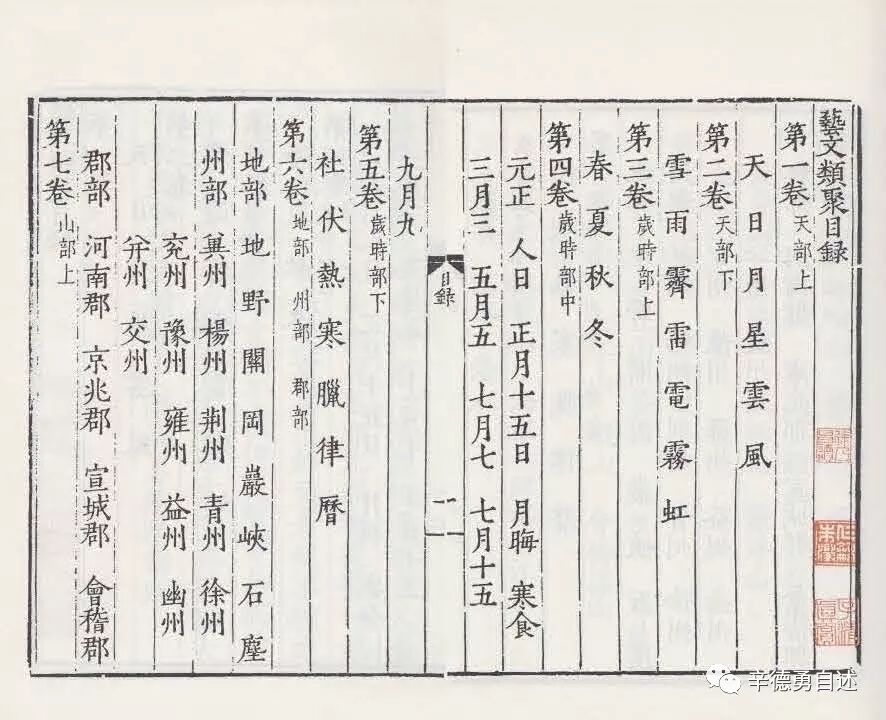 藝文類聚目録
第一卷 天部上
天 日 月 星 雲 風
第二卷 天部下
雪 雨 霽 雷 電 霧 虹
第三卷 歲時部上
春 夏 秋 冬
第四卷 歲時部中
元正 人日 正月十五日 月晦 寒食
三月三 五月五 七月七 七月十五
目録
一
一
九月九
第五卷 歲時部下
社 伏 熱 寒 臘 律 曆
第六卷 地部 州部 郡部
地部 地 野 關 岡 巖 峽 石 塵
州部 兾州 楊州 荆州 青州 徐州
兖州 豫州 雍州 益州 幽州
并州 交州
郡部 河南郡 京兆郡 宣城郡 會稽郡
第七卷 山部上
辛德勇自述